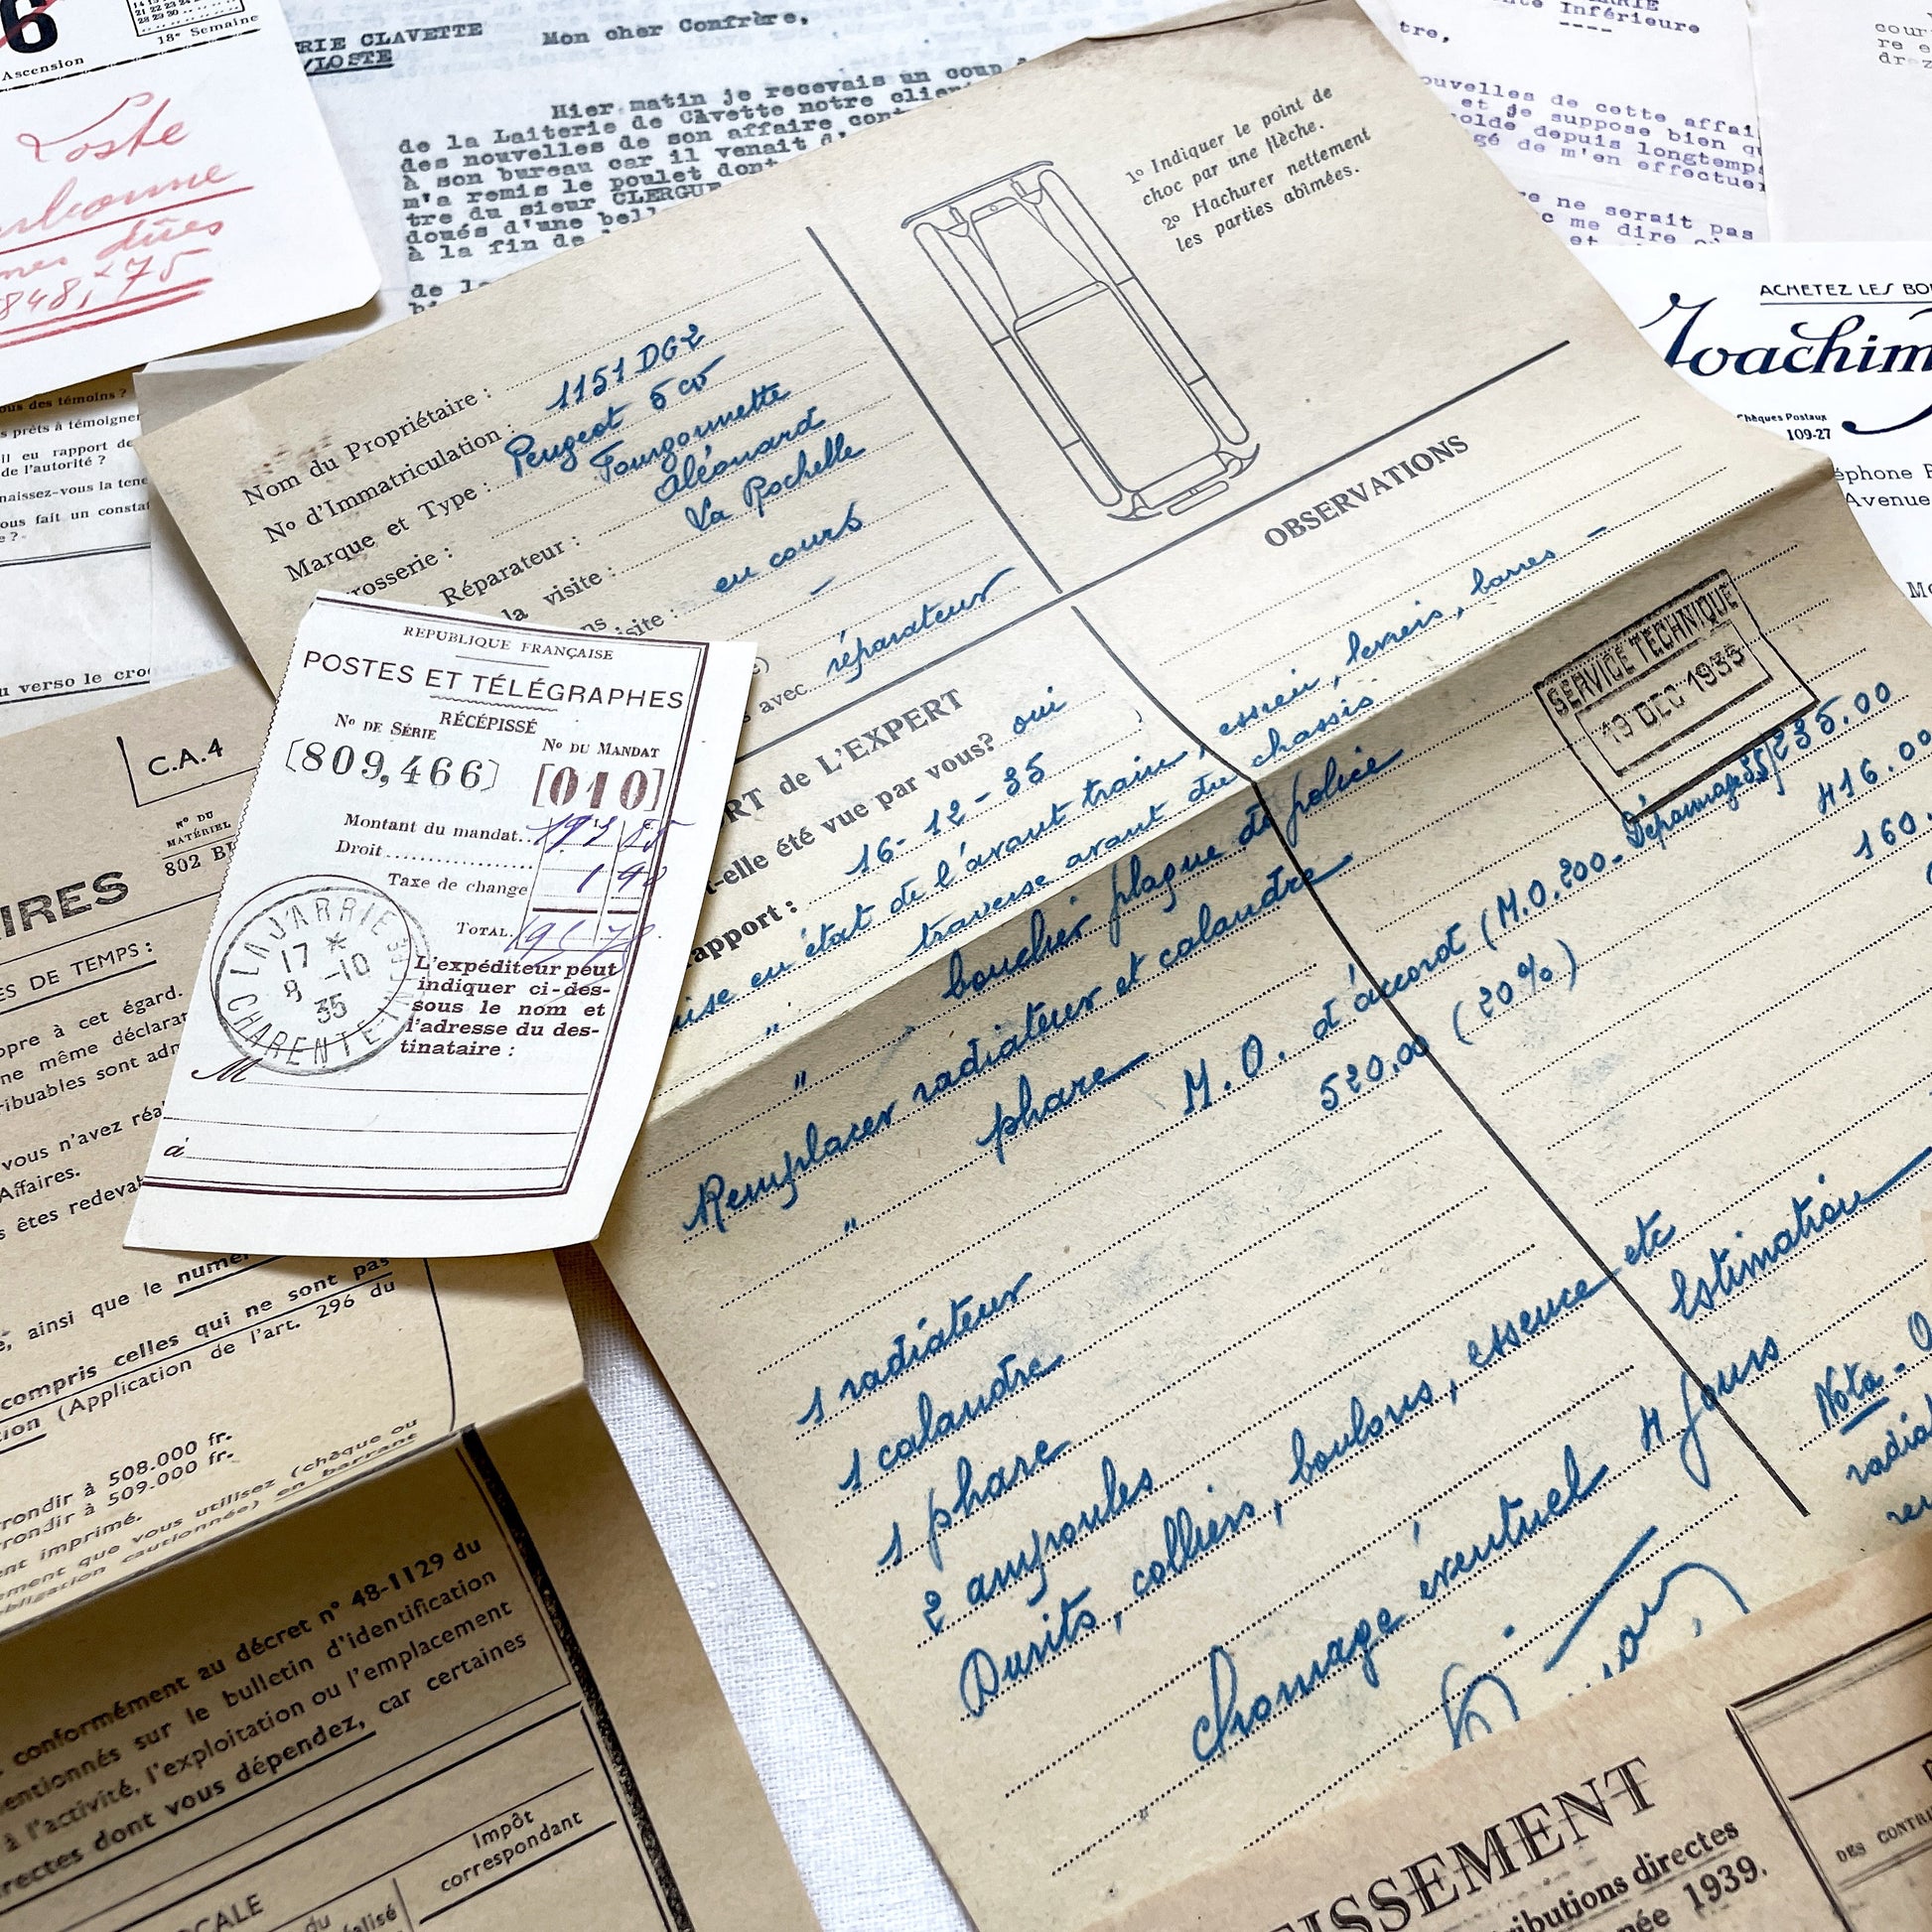 6
18e Semaine
Ascension
Poste
dûes
848,75
RIE CLAVETTE
/IOSTE
Mon cher Confrère,
Hier matin je recevais un coup
de la Laiterie de Clavette notre clien
des nouvelles de son affaire cont
à son bureau car il venait d
m'a remis le poulet dont
tre du sieur CLERGUE
doués d'une bell
à la fin de
de la
nte Inférieure
tre,
ouvelles de cette affai
et je suppose bien q
olde depuis longtemp
gé de m'en effectue
e ne serait pas
c me dire où
et
cour
re e
dr z
ACHETEZ LES BO
Joachim
Chèques Postaux
109-27
éphone
Avenue
1º Indiquer le point de
choc par une flèche.
2º Hachurer nettement
les parties abîmées.
Nom du Propriétaire :
No d'Immatriculation : 1151 DG2
Marque et Type : Peugeot 5 cv
rosserie : Fourgonnette
Réparateur : Aléonard
la visite : La Rochelle
isite : en cours
s avec réparateur
OBSERVATIONS
RT de L'EXPERT
t-elle été vue par vous? oui
apport : 16-12-35
ise en état de l'avant train, essieu, leviers, barres -
" traverse avant du chassis
" bouclier plaque de police
Remplacer radiateur et calandre
" phare M.O. d'accord (M.O. 200 - Dépannage 35) 235.00
520.00 (20%)
416.00
160.
SERVICE TECHNIQUE
19 DEC 1935
1 radiateur
1 calandre
1 phare
2 ampoules
Durits, colliers, boulons, essence etc
Estimation
chomage éventuel 4 jours
Nota - O
radia
ous des témoins ?
s prêts à témoigner
il eu rapport de
de l'autorité ?
naissez-vous la tene
ous fait un constat
e ?
u verso le cro
REPUBLIQUE FRANÇAISE
POSTES ET TÉLÉGRAPHES
RÉCÉPISSÉ
No DE SÉRIE
No DU MANDAT
[809,466]
[010]
Montant du mandat..
Droit
Taxe de change
TOTAL.
LA JARRIE
17 *
9 -10
35
CHARENTE-INF
L'expéditeur peut
indiquer ci-des-
sous le nom et
l'adresse du des-
tinataire :
M
à
C.A.4
No DU
MATÉRIEL
802 B
AIRES
ES DE TEMPS :
opre à cet égard.
ne même déclarat
ribuables sont adm
vous n'avez réa
Affaires.
s êtes redeva
, ainsi que le numér
compris celles qui ne sont pas
tion (Application de l'art. 296 du
rrondir à 508.000 fr.
rrondir à 509.000 fr.
ent imprimé.
ement que vous utilisez (chèque ou
obligation cautionnée) en barrant
conformément au décret no 48-1129 du
entionnés sur le bulletin d'identification
à l'activité, l'exploitation ou l'emplacement
irectes dont vous dépendez, car certaines
OCALE
du
éalisé
Impôt
correspondant
ISSEMENT
tributions directes
née 1939.
DES CONTRI